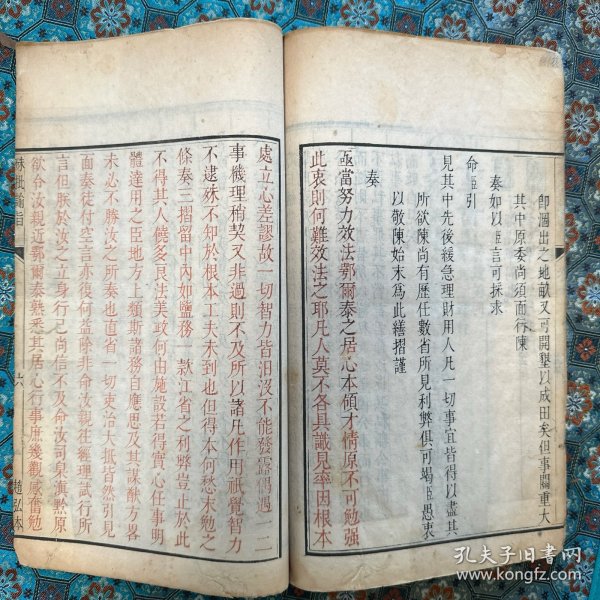 即涸出之地畝又可開墾以成田矣但事關重大
其中原委尚須面行陳
奏如以臣言可採求
命臣引
見其中先後緩急理財用人凡一切事宜皆得以盡其
所欲陳尚有歷任數省所見利弊俱可竭臣愚衷
以敬陳始末為此繕摺謹
奏
亟當努力效法鄂爾泰之居心本領才情原不可勉强
此衷則何難效法之耶凡人莫不各具識見率因根本
處立心差謬故一切智力皆汩沒不能發露倘遇一二
事機理稍契又非過則不及所以諸凡作用祇覺智力
不逮殊不知於根本工夫未到也但得本何愁末勉之
條奏三摺留中內如鹽務一款江省之利弊豈止於此
不得其人饒多良法美政何由施設若得實心任事明
體達用之臣地方上類斯諸務自應思及其謀猷方畧
未必不勝汝之所奏也直省一切來洽大抵皆然引見
面奏徒付空言亦復何益除非命汝現往經理試行所
言但朕於汝之立身行己尚信不及命汝司臬滇黔原
欲令汝親近鄂爾泰熟悉其居心行事庶幾觀感奮勉
硃批諭旨
六
趙弘本
孔夫子旧书网
www.kongfz.com